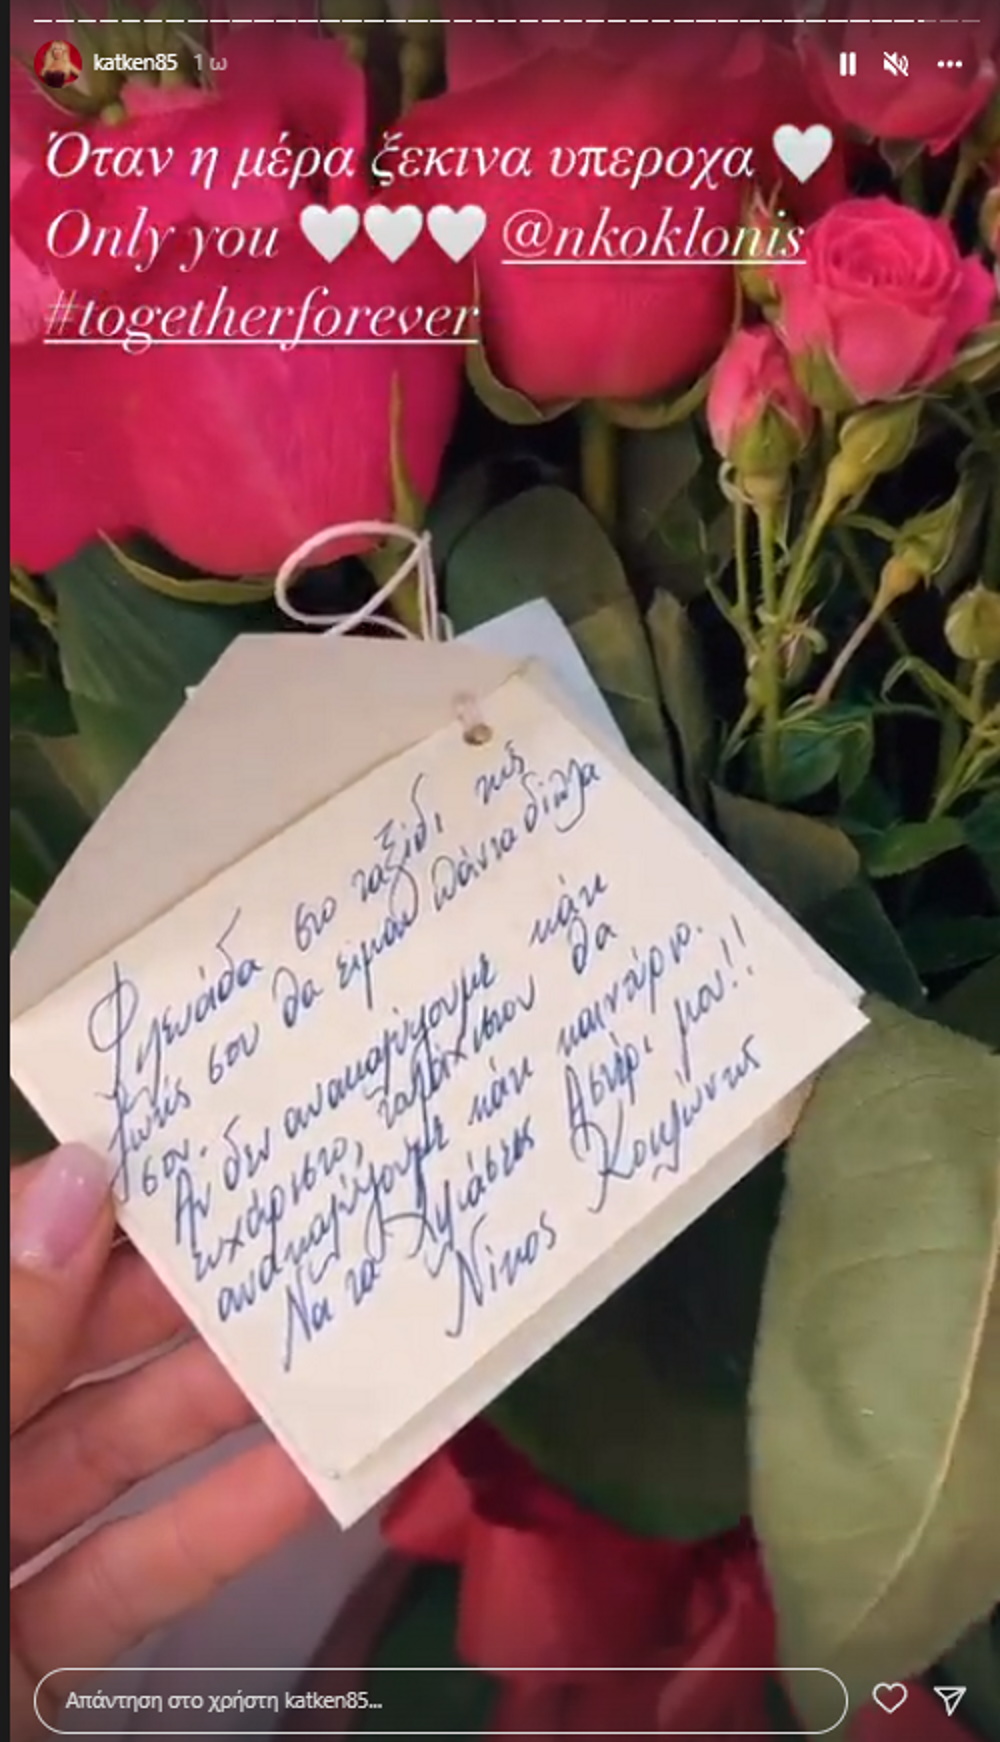 katken85 1 ω
Όταν η μέρα ξεκινα υπεροχα 🤍
Only you 🤍🤍🤍 @nkoklonis
#togetherforever
στο ταξίδι της
ζωής σου θα είμαι πάντα δίπλα
σου.
Αν δεν ανακαλύψουμε κάτι
ευχάριστο, τουλάχιστον θα
ανακαλύψουμε κάτι καινούριο.
Να τα χιλιάσεις Αστέρι μου!!
Νίκος Κοκλώνης
Απάντηση στο χρήστη katken85...